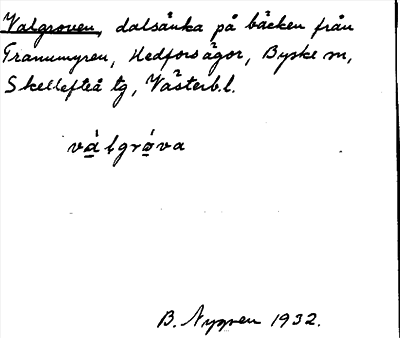 Valgroven, dalsänka på bäcken från
Tranumyren, Hedforsågor, Byske sn,
Skellefteå tg, Västerb.l.
vàlgròva
B. Nygren 1932.